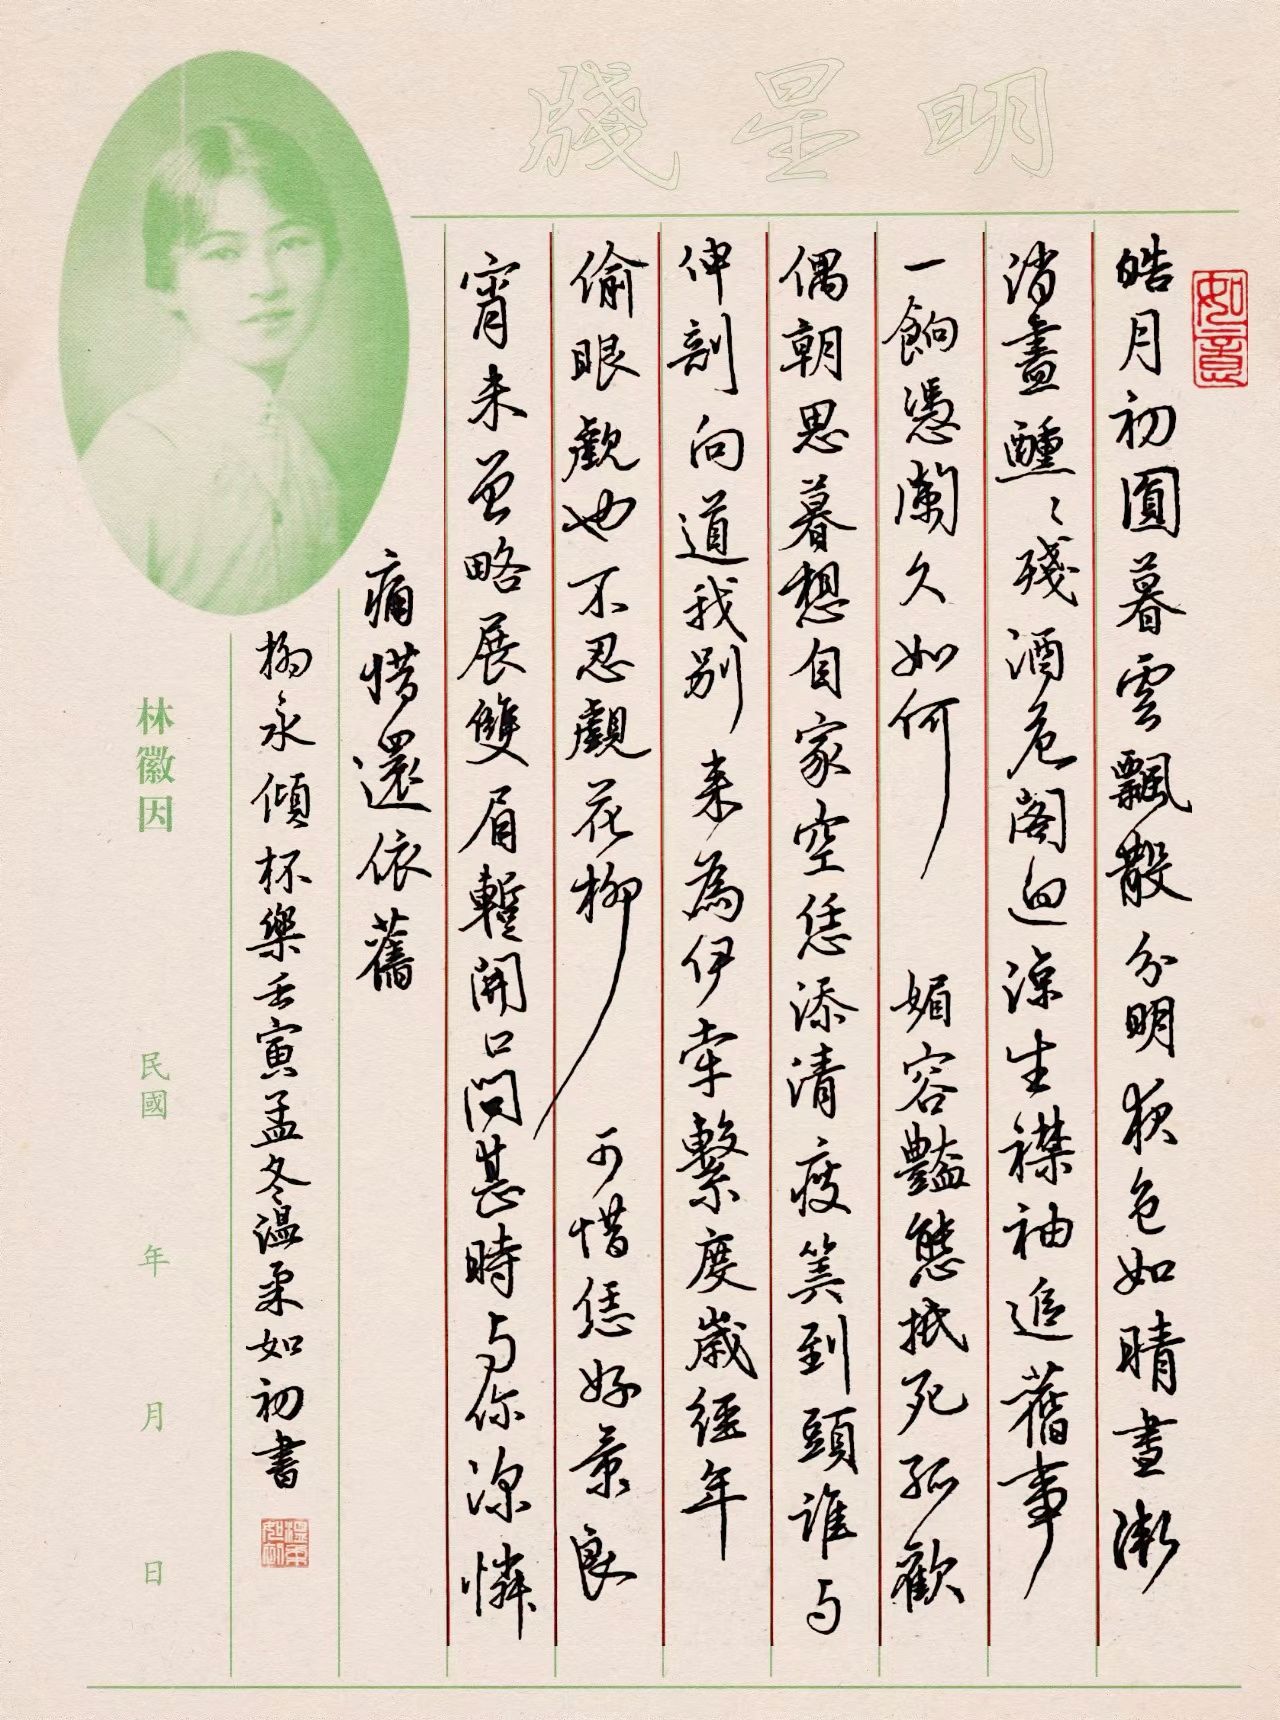 明星牋
如意
皓月初圓暮雲飄散分明夜色如晴晝漸
消盡醺〻殘酒危閣迥涼生襟袖追舊事
一餉憑闌久如何 媚容豔態抵死孤歡
偶朝思暮想自家空恁添清瘦算到頭誰与
伸剖向道我別來為伊牽繫度歲經年
偷眼覷也不忍覷花柳 可惜恁好景良
宵未曾略展雙眉暫開口問甚時与你深憐
痛惜還依舊
柳永傾杯樂壬寅孟冬溫柔如初書
溫柔如初
林徽因
民國 年 月 日